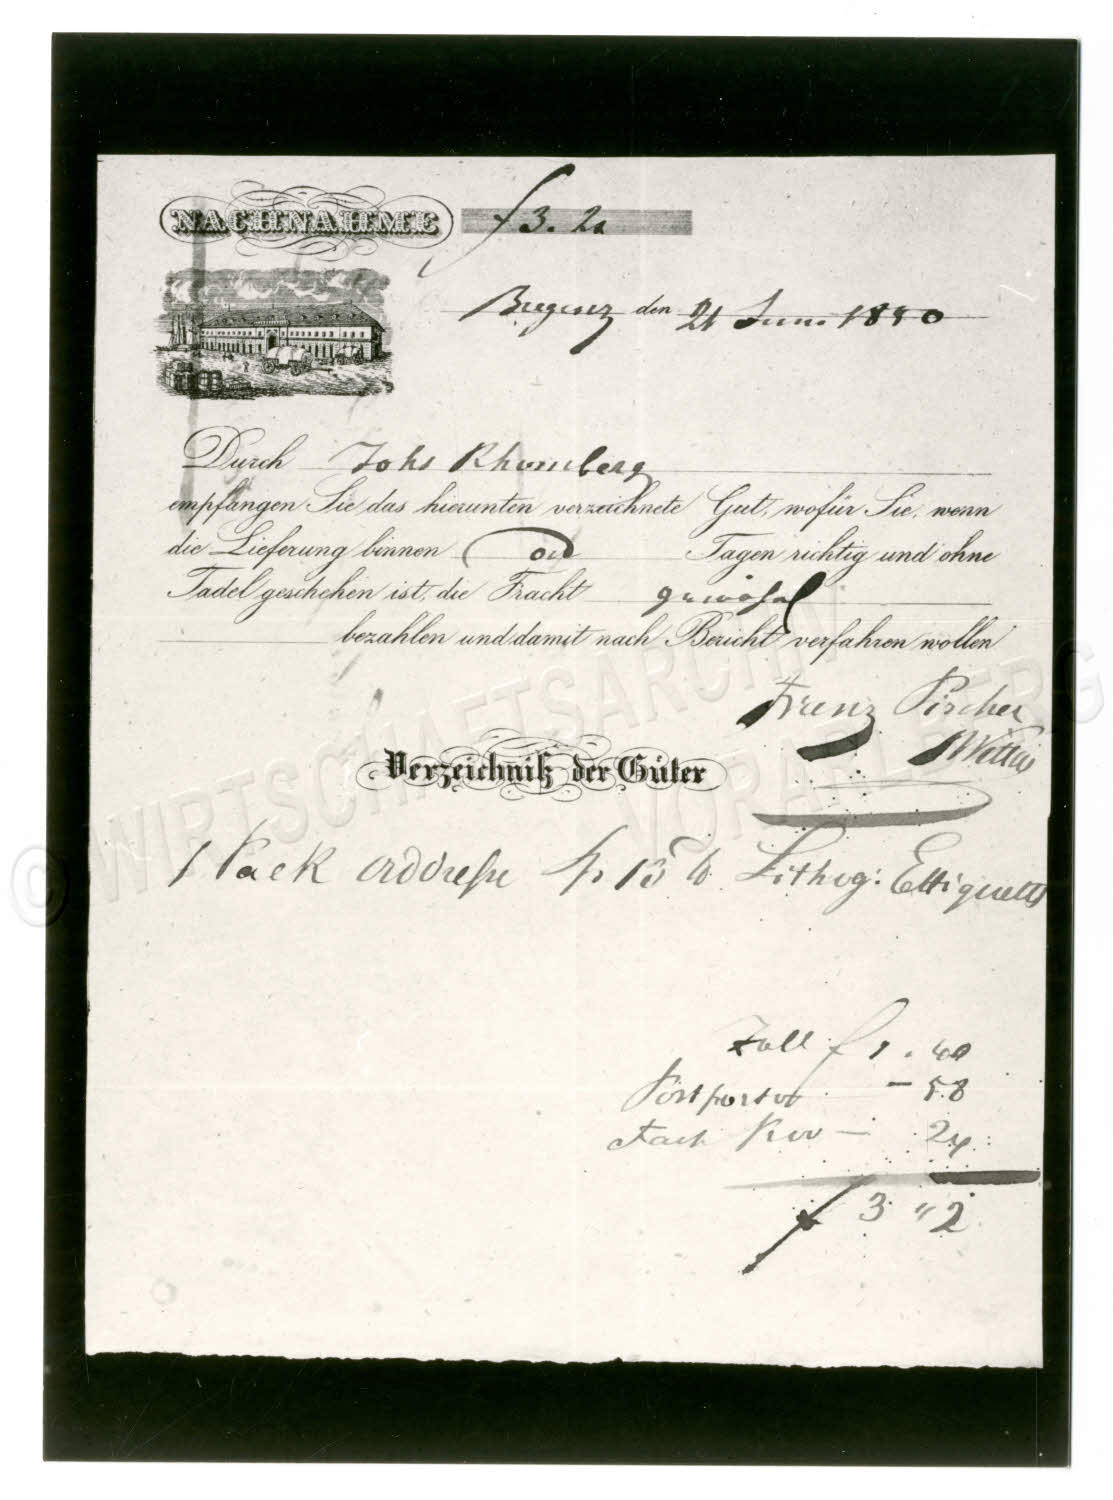 NACHNAHME f 3. 2
Bregenz den 21 Juni 1850
Durch Johs Rhomberg
empfangen Sie das hierunten verzeichnete Gut, wofür Sie, wenn
die Lieferung binnen Tagen richtig und ohne
Tadel geschehen ist, die Fracht
bezahlen und damit nach Bericht verfahren wollen
Franz Fischer
Verzeichniß der Güter
1 Pack Addresse Lithog: Ettiquetts
Zoll f 1. 40
Postporto — 58
24
f 3 "2
© WIRTSCHAFTSARCHIV VORARLBERG